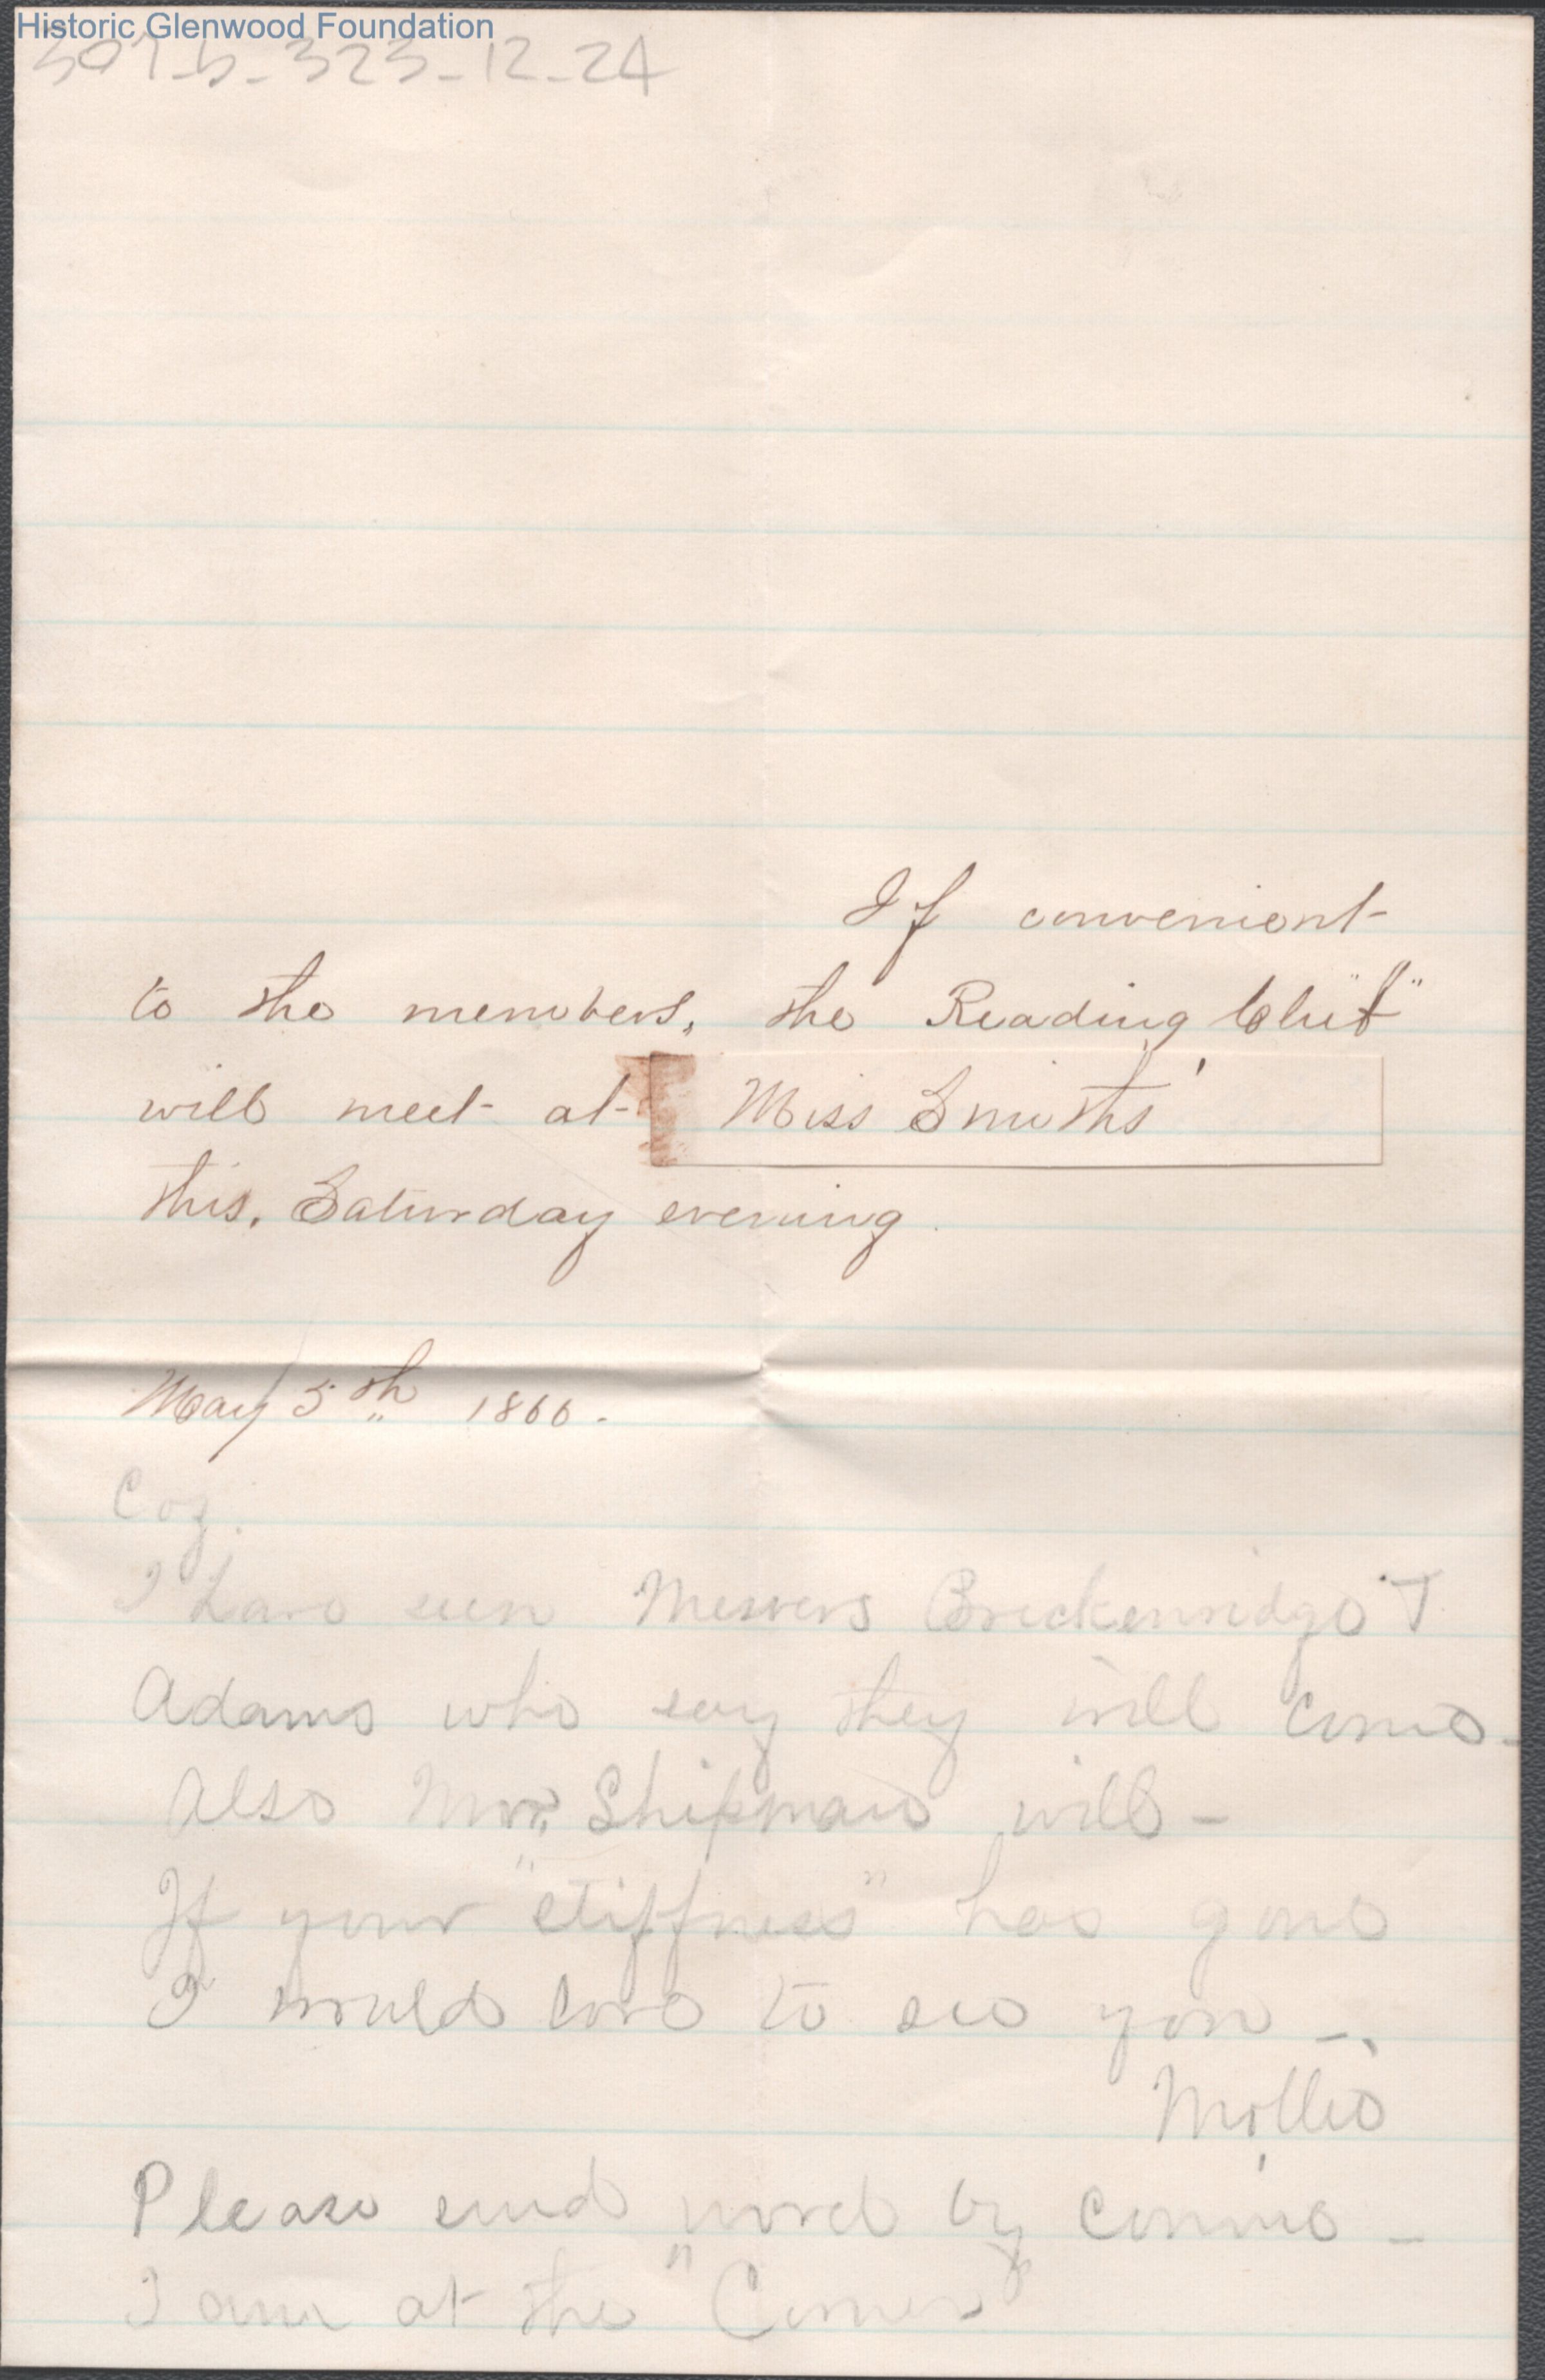 Historic Glenwood Foundation
307-b-323-12-24
If convenient
to the members, the Reading "Club"
will meet at Miss Smiths'
this, Saturday evening.
May 5th 1866.
Coz.
I have seen Messers Breckenridge
Adams who say they will come -
Also Mr. Shipman will -
If your "stiffness" has gone
I would love to see you -.
Mollie
Please send word by Connie -
I am at the "Corner"